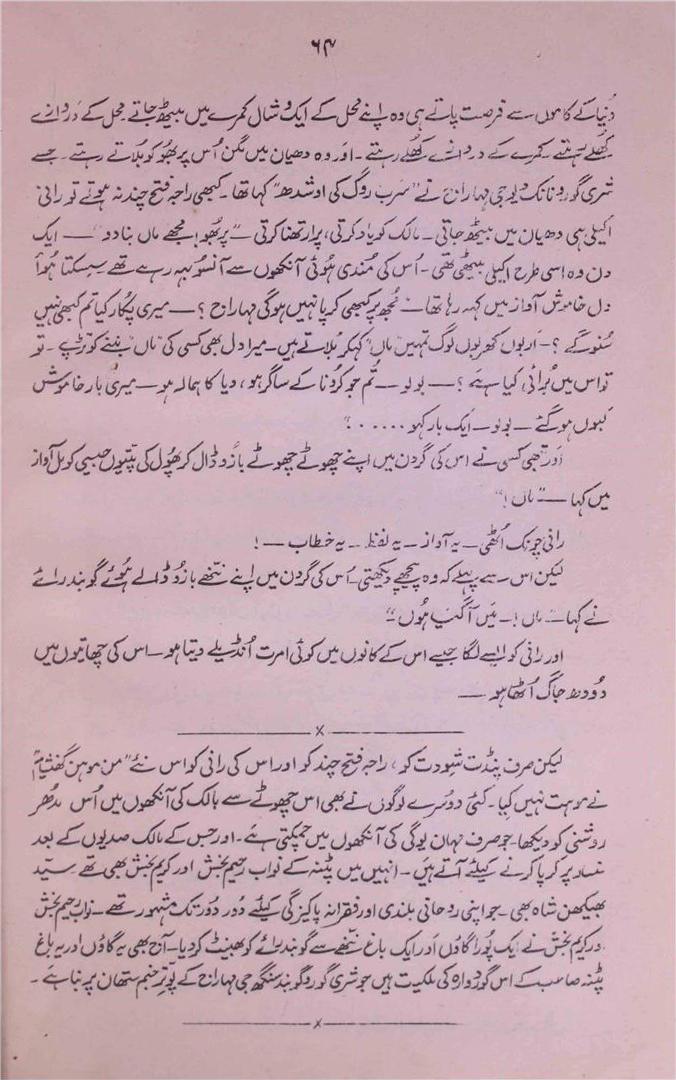 ۶۴
دُنیا کے کاموں سے فرصت پاتے ہی وہ اپنے محل کے ایک وشال کمرے میں بیٹھ جاتے۔ محل کے دروازے
کھُلے رہتے۔ کمرے کے دروازے کھُلے رہتے۔ اور وہ دھیان میں مگن اُس پربھُو کو بُلاتے رہتے۔ جسے
شری گورو نانک دیو جی مہاراج نے "سَرب روگ کی اوشدھ" کہا تھا۔ کبھی راجہ فتح چند نہ ہوتے تو رانی
اکیلی ہی دھیان میں بیٹھ جاتی۔ مالک کو یاد کرتی، پرارتھنا کرتی — "پربھُو! مجھے ماں بنا دو" — ایک
دن وہ اسی طرح اکیلی بیٹھی تھی۔ اُس کی مُندی ہُوئی آنکھوں سے آنسو بہہ رہے تھے سِسکتا ہُوا
دل خاموش آواز میں کہہ رہا تھا — "مُجھ پر کبھی کرپا نہیں ہوگی مہاراج؟ — میری پُکار کیا تم کبھی نہیں
سُنو گے؟ — اَربوں کھربوں لوگ تمہیں "ماں" کہہ کر بُلاتے ہیں۔ میرا دل بھی کسی کی "ماں" بننے کو تڑپے۔ تو
تو اس میں بُرائی کیا ہے؟ — بولو — تُم جو کرُونا کے ساگر ہو، دیا کا ہمالہ ہو — میری بار خاموش
کیوں ہو گئے — بولو — ایک بار کہو ......"
اَور تبھی کسی نے اس کی گردن میں اپنے چھوٹے چھوٹے بازو ڈال کر پھُول کی پتیوں جیسی کومل آواز
میں کہا — "ماں!"
رانی چونک اُٹھی — یہ آواز — یہ لفظ — یہ خطاب — !
لیکن اس سے پہلے کہ وہ پیچھے دیکھتی۔ اُس کی گردن میں اپنے ننّھے بازو ڈالے ہُوئے گوبند رائے
نے کہا — "ماں! — مَیں آ گیا ہُوں"
اور رانی کو ایسے لگا جیسے اس کے کانوں میں کوئی امرت اُنڈیلے دیتا ہو — اس کی چھاتیوں میں
دُودھ جاگ اُٹھا ہو —
x
لیکن صرف پنڈت شِودت کو، راجہ فتح چند کو اور اس کی رانی کو اس نئے "من موہن گھنشیام"
نے موہت نہیں کیا۔ کئی دوسرے لوگوں نے بھی اس چھوٹے سے بالک کی آنکھوں میں اُس مدُھر
روشنی کو دیکھا۔ جو صرف مہان یوگی کی آنکھوں میں چمکتی ہے۔ اور جس کے مالک صدیوں کے بعد
سنسار پر کرپا کرنے کیلئے آتے ہیں۔ انہیں میں پٹنہ کے نواب رحیم بخش اور کریم بخش بھی تھے سیّد
بھیکھن شاہ بھی۔ جو اپنی روحانی بلندی اور فقیرانہ پاکیزگی کیلئے دور دور تک مشہور تھے۔ نواب رحیم بخش
اور کریم بخش نے ایک پُورا گاؤں اَور ایک باغ ننّھے سے گوبند رائے کو بھینٹ کر دیا۔ آج بھی یہ گاؤں اور یہ باغ
پٹنہ صاحب کے اس گوردوارہ کی ملکیت ہیں جو شری گورو گوبند سنگھ جی مہاراج کے پوِتر جنم ستھان پر بنا ہے۔
x